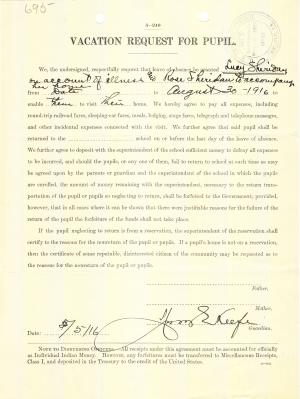 695
5-240
VACATION REQUEST FOR PUPIL.
We, the undersigned, respectfully request that leave of absence be granted Lucy Sheridan
on account of illness & Rose Sheridan to accompany
her home
from date to August 30 - 1916 to
enable them to visit their home. We hereby agree to pay all expenses, including
round-trip railroad fares, sleeping-car fares, meals, lodging, stage fares, telegraph and telephone messages,
and other incidental expenses connected with the visit. We further agree that said pupil shall be returned
to the school on or before the last day of the leave of absence.
We further agree to deposit with the superintendent of the school sufficient money to defray all expenses
to be incurred, and should the pupils, or any one of them, fail to return to school at such time as may
be agreed upon by the parents or guardian and the superintendent of the school in which the pupils
are enrolled, the amount of money remaining with the superintendent, necessary to the return trans-
portation of the pupil or pupils so neglecting to return, shall be forfeited to the Government; provided,
however, that in all cases where it can be shown that there were justifiable reasons for the failure of the
return of the pupil the forfeiture of the funds shall not take place.
If the pupil neglecting to return is from a reservation, the superintendent of the reservation shall
certify to the reasons for the nonreturn of the pupil or pupils. If a pupil's home is not on a reservation,
then the certificate of some reputable, disinterested citizen of the community may be requested as to
the reasons for the nonreturn of the pupil or pupils.
Father.
Mother.
Keefe
Guardian.
Date: 8/5/16
NOTE TO DISBURSING OFFICERS.—All receipts under this agreement must be accounted for officially
as Individual Indian Money. However, any forfeitures must be transferred to Miscellaneous Receipts,
Class I, and deposited in the Treasury to the credit of the United States.